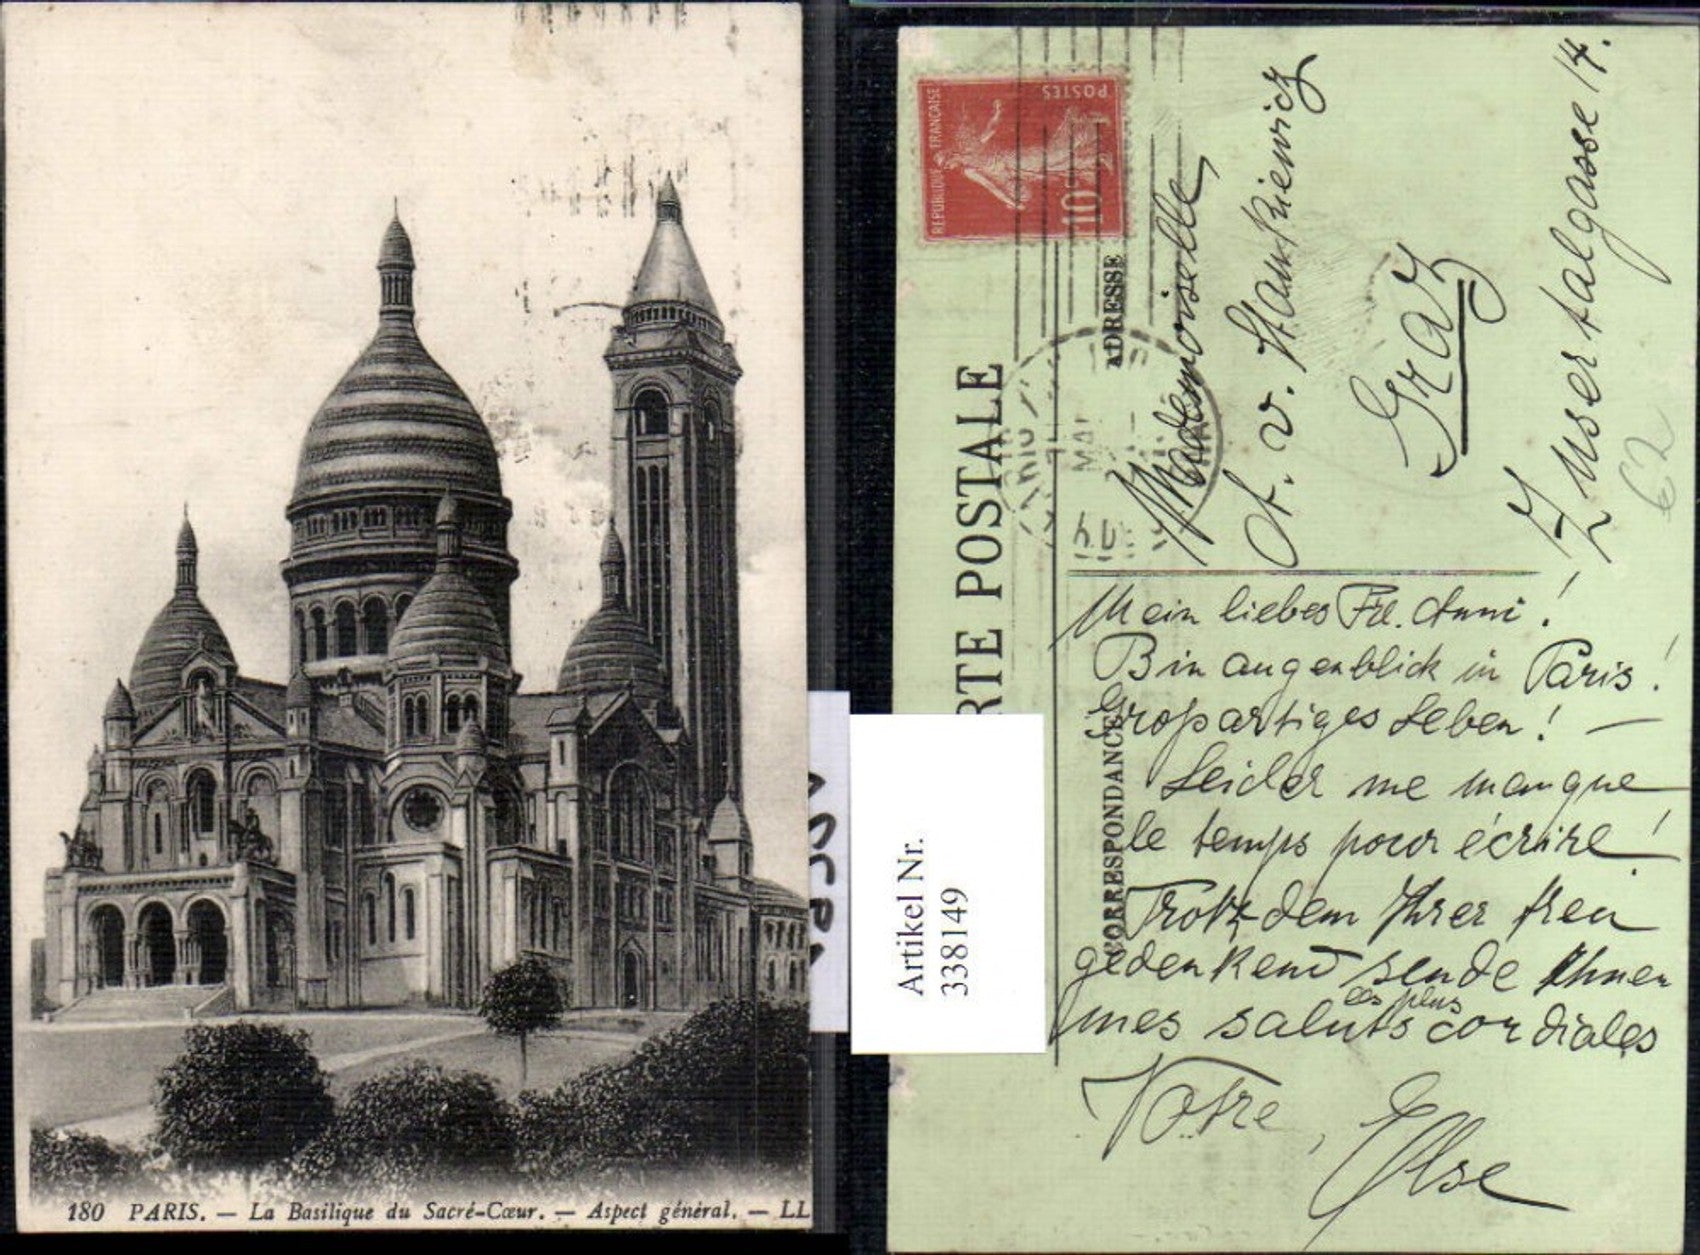 180 PARIS. — La Basilique du Sacré-Cœur. — Aspect général. — LL
Artikel Nr.
338149
CARTE POSTALE
REPUBLIQUE FRANÇAISE
POSTES
10c
ADRESSE
CORRESPONDANCE
PARIS
MAI
Mademoiselle,
A. v. Stankiewicz
Graz
Zusertalgasse 14.
62
Mein liebes Frl. Anni!
Bin augenblick in Paris!
Gropartiges Leben! —
Leider me manque
le temps pour écrire!
Trotzdem Ihrer treu
gedenkend sende Ihnen
mes saluts les plus cordiales
Votre,
Else